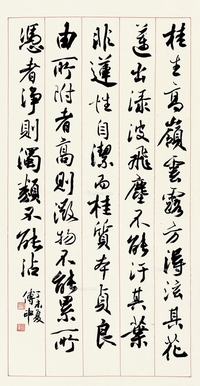 桂生高嶺雲露方得泫其花
蓮出淥波飛塵不能汙其葉
非蓮性自潔而桂質本貞良
由所附者高則微物不能累所
憑者淨則濁類不能沾